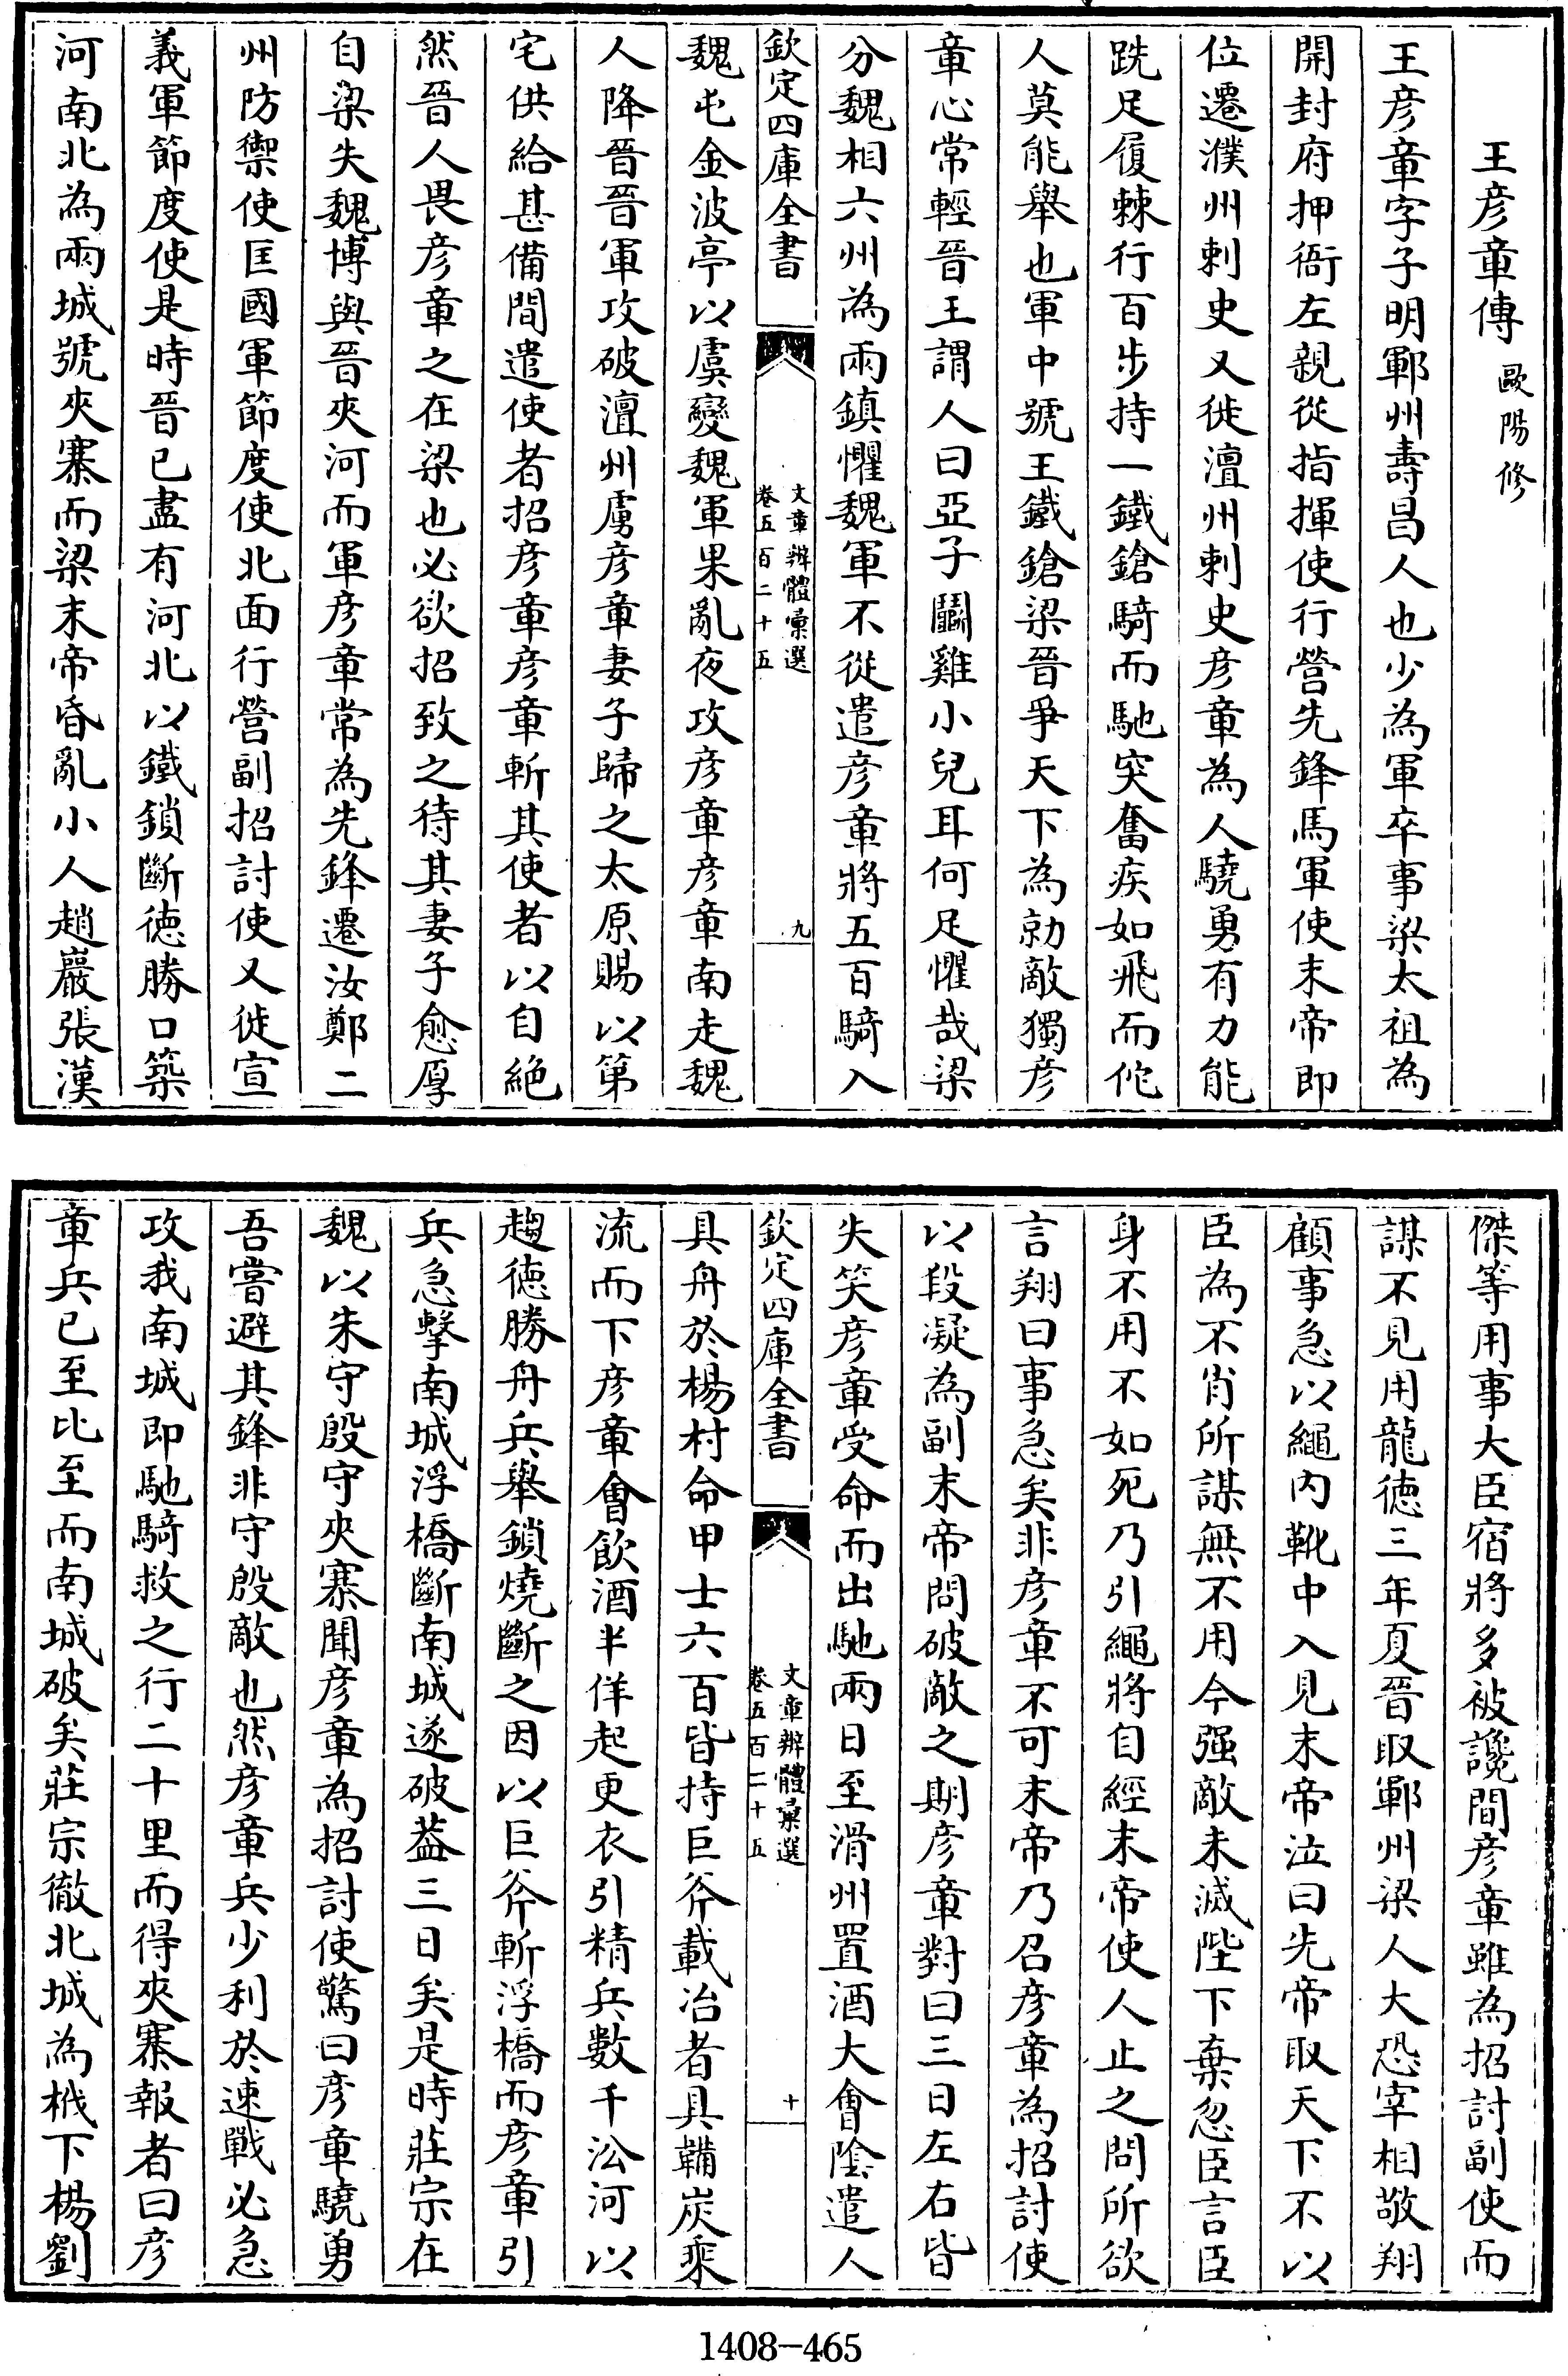 王彦章傳 歐陽修
王彦章字子明鄆州壽昌人也少為軍卒事梁太祖為
開封府押衙左親從指揮使行營先鋒馬軍使末帝即
位遷濮州刺史又徙澶州刺史彦章為人驍勇有力能
跣足履棘行百步持一鐵鎗騎而馳突奮疾如飛而佗
人莫能舉也軍中號王鐵鎗梁晉爭天下為勍敵獨彦
章心常輕晉王謂人曰亞子鬭雞小兒耳何足懼哉梁
分魏相六州為兩鎮懼魏軍不從遣彦章將五百騎入
欽定四庫全書
文章辨體彙選
卷五百二十五
九
魏屯金波亭以虞變魏軍果亂夜攻彦章彦章南走魏
人降晉晉軍攻破澶州虜彦章妻子歸之太原賜以第
宅供給甚備間遣使者招彦章彦章斬其使者以自絶
然晉人畏彦章之在梁也必欲招致之待其妻子愈厚
自梁失魏博與晉夾河而軍彦章常為先鋒遷汝鄭二
州防禦使匡國軍節度使北面行營副招討使又徙宣
義軍節度使是時晉已盡有河北以鐵鎖斷德勝口築
河南北為兩城號夾寨而梁末帝昏亂小人趙巖張漢
傑等用事大臣宿將多被讒間彦章雖為招討副使而
謀不見用龍德三年夏晉取鄆州梁人大恐宰相敬翔
顧事急以繩内靴中入見末帝泣曰先帝取天下不以
臣為不肖所謀無不用今强敵未滅陛下棄忽臣言臣
身不用不如死乃引繩將自經末帝使人止之問所欲
言翔曰事急矣非彦章不可末帝乃召彦章為招討使
以段凝為副末帝問破敵之期彦章對曰三日左右皆
失笑彦章受命而出馳兩日至滑州置酒大會陰遣人
欽定四庫全書
文章辨體彙選
卷五百二十五
十
具舟於楊村命甲士六百皆持巨斧載冶者具鞴炭乘
流而下彦章會飲酒半佯起更衣引精兵數千㳂河以
趨德勝舟兵舉鎖燒斷之因以巨斧斬浮橋而彦章引
兵急擊南城浮橋斷南城遂破葢三日矣是時莊宗在
魏以朱守殷守夾寨聞彦章為招討使驚曰彦章驍勇
吾嘗避其鋒非守殷敵也然彦章兵少利於速戰必急
攻我南城即馳騎救之行二十里而得夾寨報者曰彦
章兵已至比至而南城破矣莊宗徹北城為栰下楊劉
1408-465